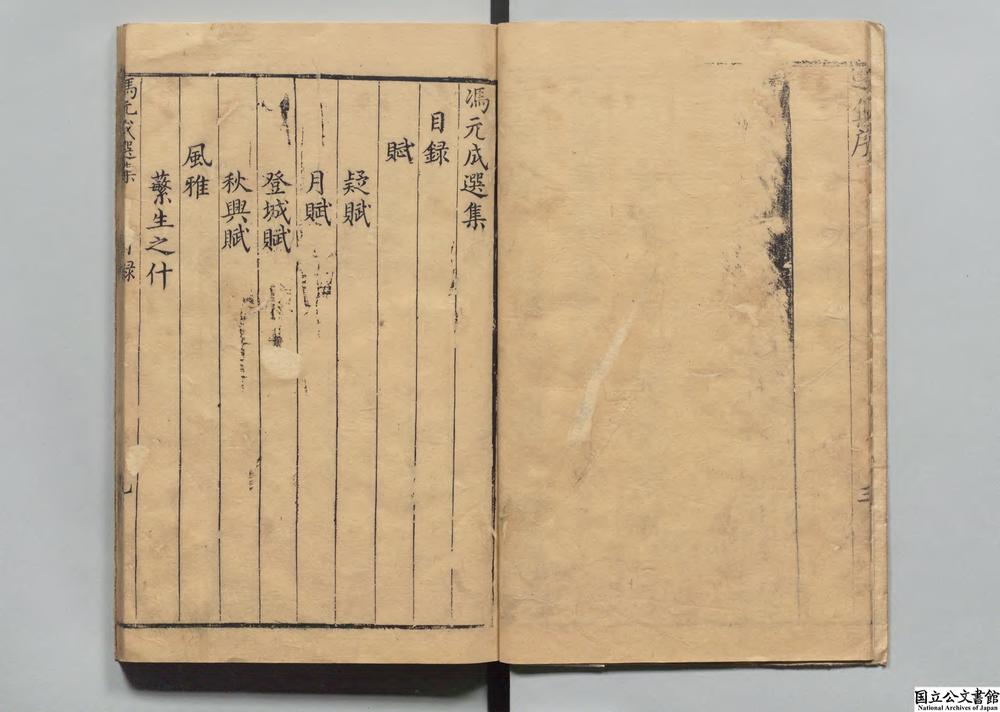 馮元成選集
目録
賦
疑賦
月賦
登城賦
秋興賦
風雅
蘩生之什
馮元成選集
録
三
国立公文書館
National Archives of Japan